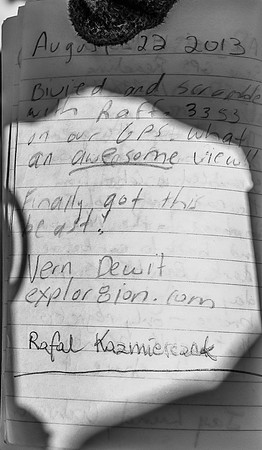 August 22 2013
Bivied and scramble
with Raff 3353
on our GPS. What
an awesome view!!
Finally got this
beast!
Vern Dewit
explor8ion.com
Rafal Kazmierczak